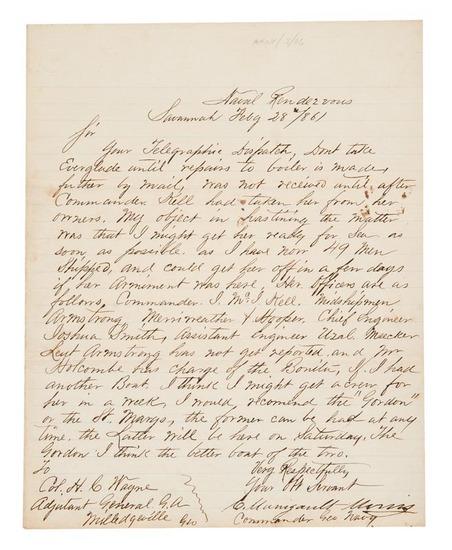 Naval Rendezvous
Savannah Feby 28th/861
Sir
Your Telegraphic Dispatch, Dont take
Everglade until repairs to boiler is made,
further by mail, was not received until after
Commander Kell had taken her from her
owners. My object in hastening the matter
was that I might get her ready for Sea as
soon as possible. as I have now 49 Men
Shipped, and could get her off in a few days
if her Armament was here, Her Officers are as
follows, Commander J. McI Kell. Midshipmen
Armstrong, Merriweather & Hooper. Chief Engineer
Joshua Smith, Assistant Engineer Uzal.
Lieut Armstrong has not yet reported and Mr
Holcombe has charge of the Bonita, If I had
another Boat I think I might get a crew for
her in a week, I would recomend the "Gordon"
or the St. Marys, the former can be had at any
time, the Latter will be here on Saturday. The
Gordon I think the better boat of the two.
To Very Respectfully
Col. H. C Wayne Your Ob Servant
Adjutant General G.A C. Manigault Morris
Milledgeville Geo Commander Geo Navy